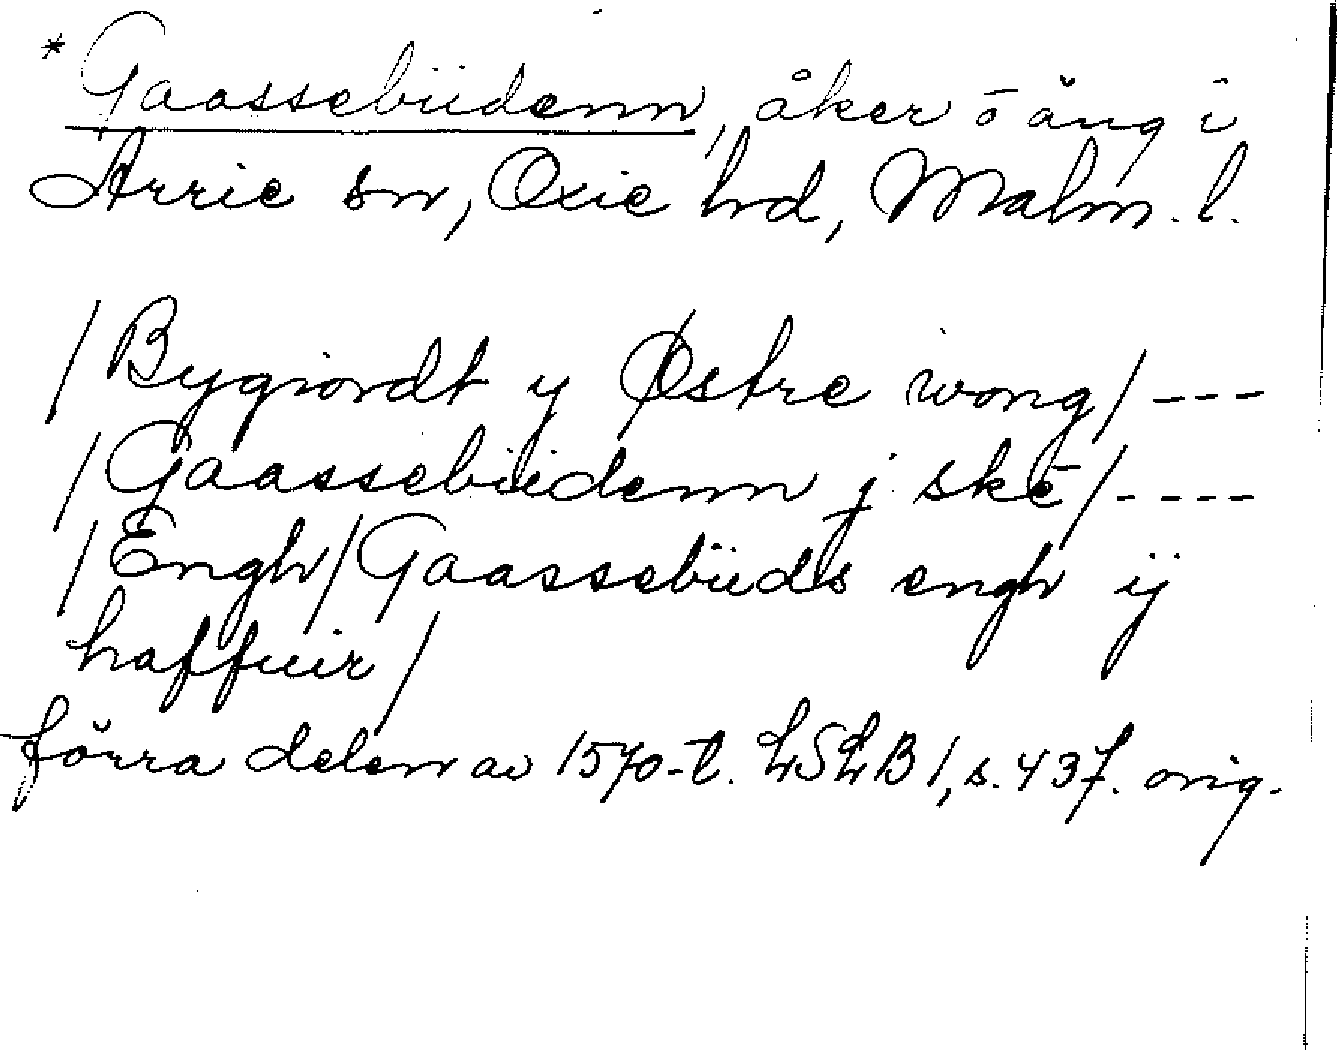 * Gaassebüdenn, åker o äng i
Arrie sn, Oxie hd, Malm. l.
/Bygiordt y Østre wong/ ---
/Gaassebüdenn j skē/ ----
/Engh/Gaassebüds engh ij
haffuir/
förra delen av 1570-t. LSLB 1, s. 437. orig.